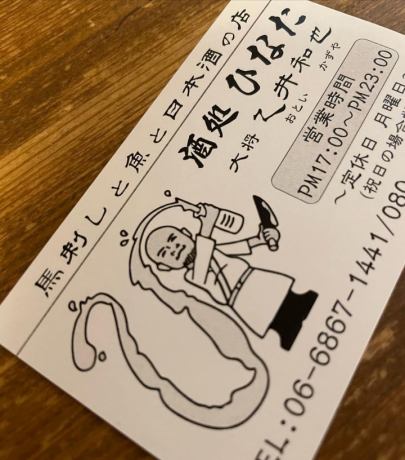 馬刺しと魚と日本酒の店
酒処 ひなた
大将 乙井和也
おとい かずや
営業時間
PM17:00〜PM23:00
〜定休日 月曜日
(祝日の場合
TEL:06-6867-1441/080